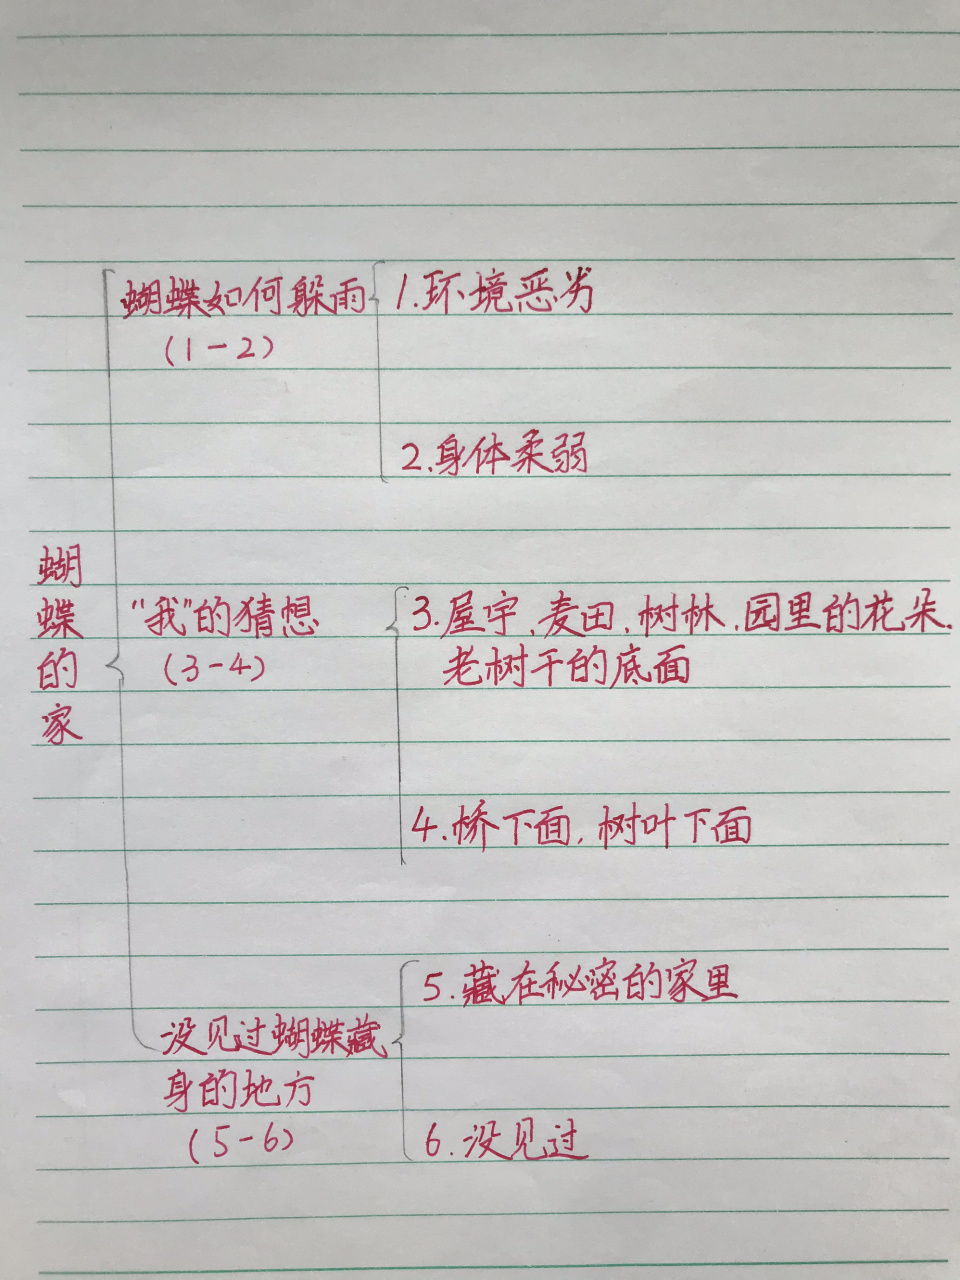 蝴蝶的家
蝴蝶如何躲雨
(1-2)
1.环境恶劣
2.身体柔弱
"我"的猜想
(3-4)
3.屋宇、麦田、树林、园里的花朵、
老树干的底面
4.桥下面,树叶下面
没见过蝴蝶藏
身的地方
(5-6)
5.藏在秘密的家里
6.没见过